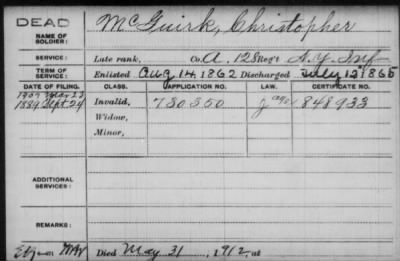 DEAD
NAME OF SOLDIER: McGuirk, Christopher
SERVICE: Late rank, Co. A, 128 Reg't N.Y. Inf
TERM OF SERVICE: Enlisted Aug 14, 1862 Discharged July 12 1865
DATE OF FILING. CLASS. APPLICATION NO. LAW. CERTIFICATE NO.
1907 Mar 23
1889 Sept 24 Invalid, 730350 848933
Widow,
Minor,
ADDITIONAL SERVICES:
REMARKS:
Died May 31, 1912, at